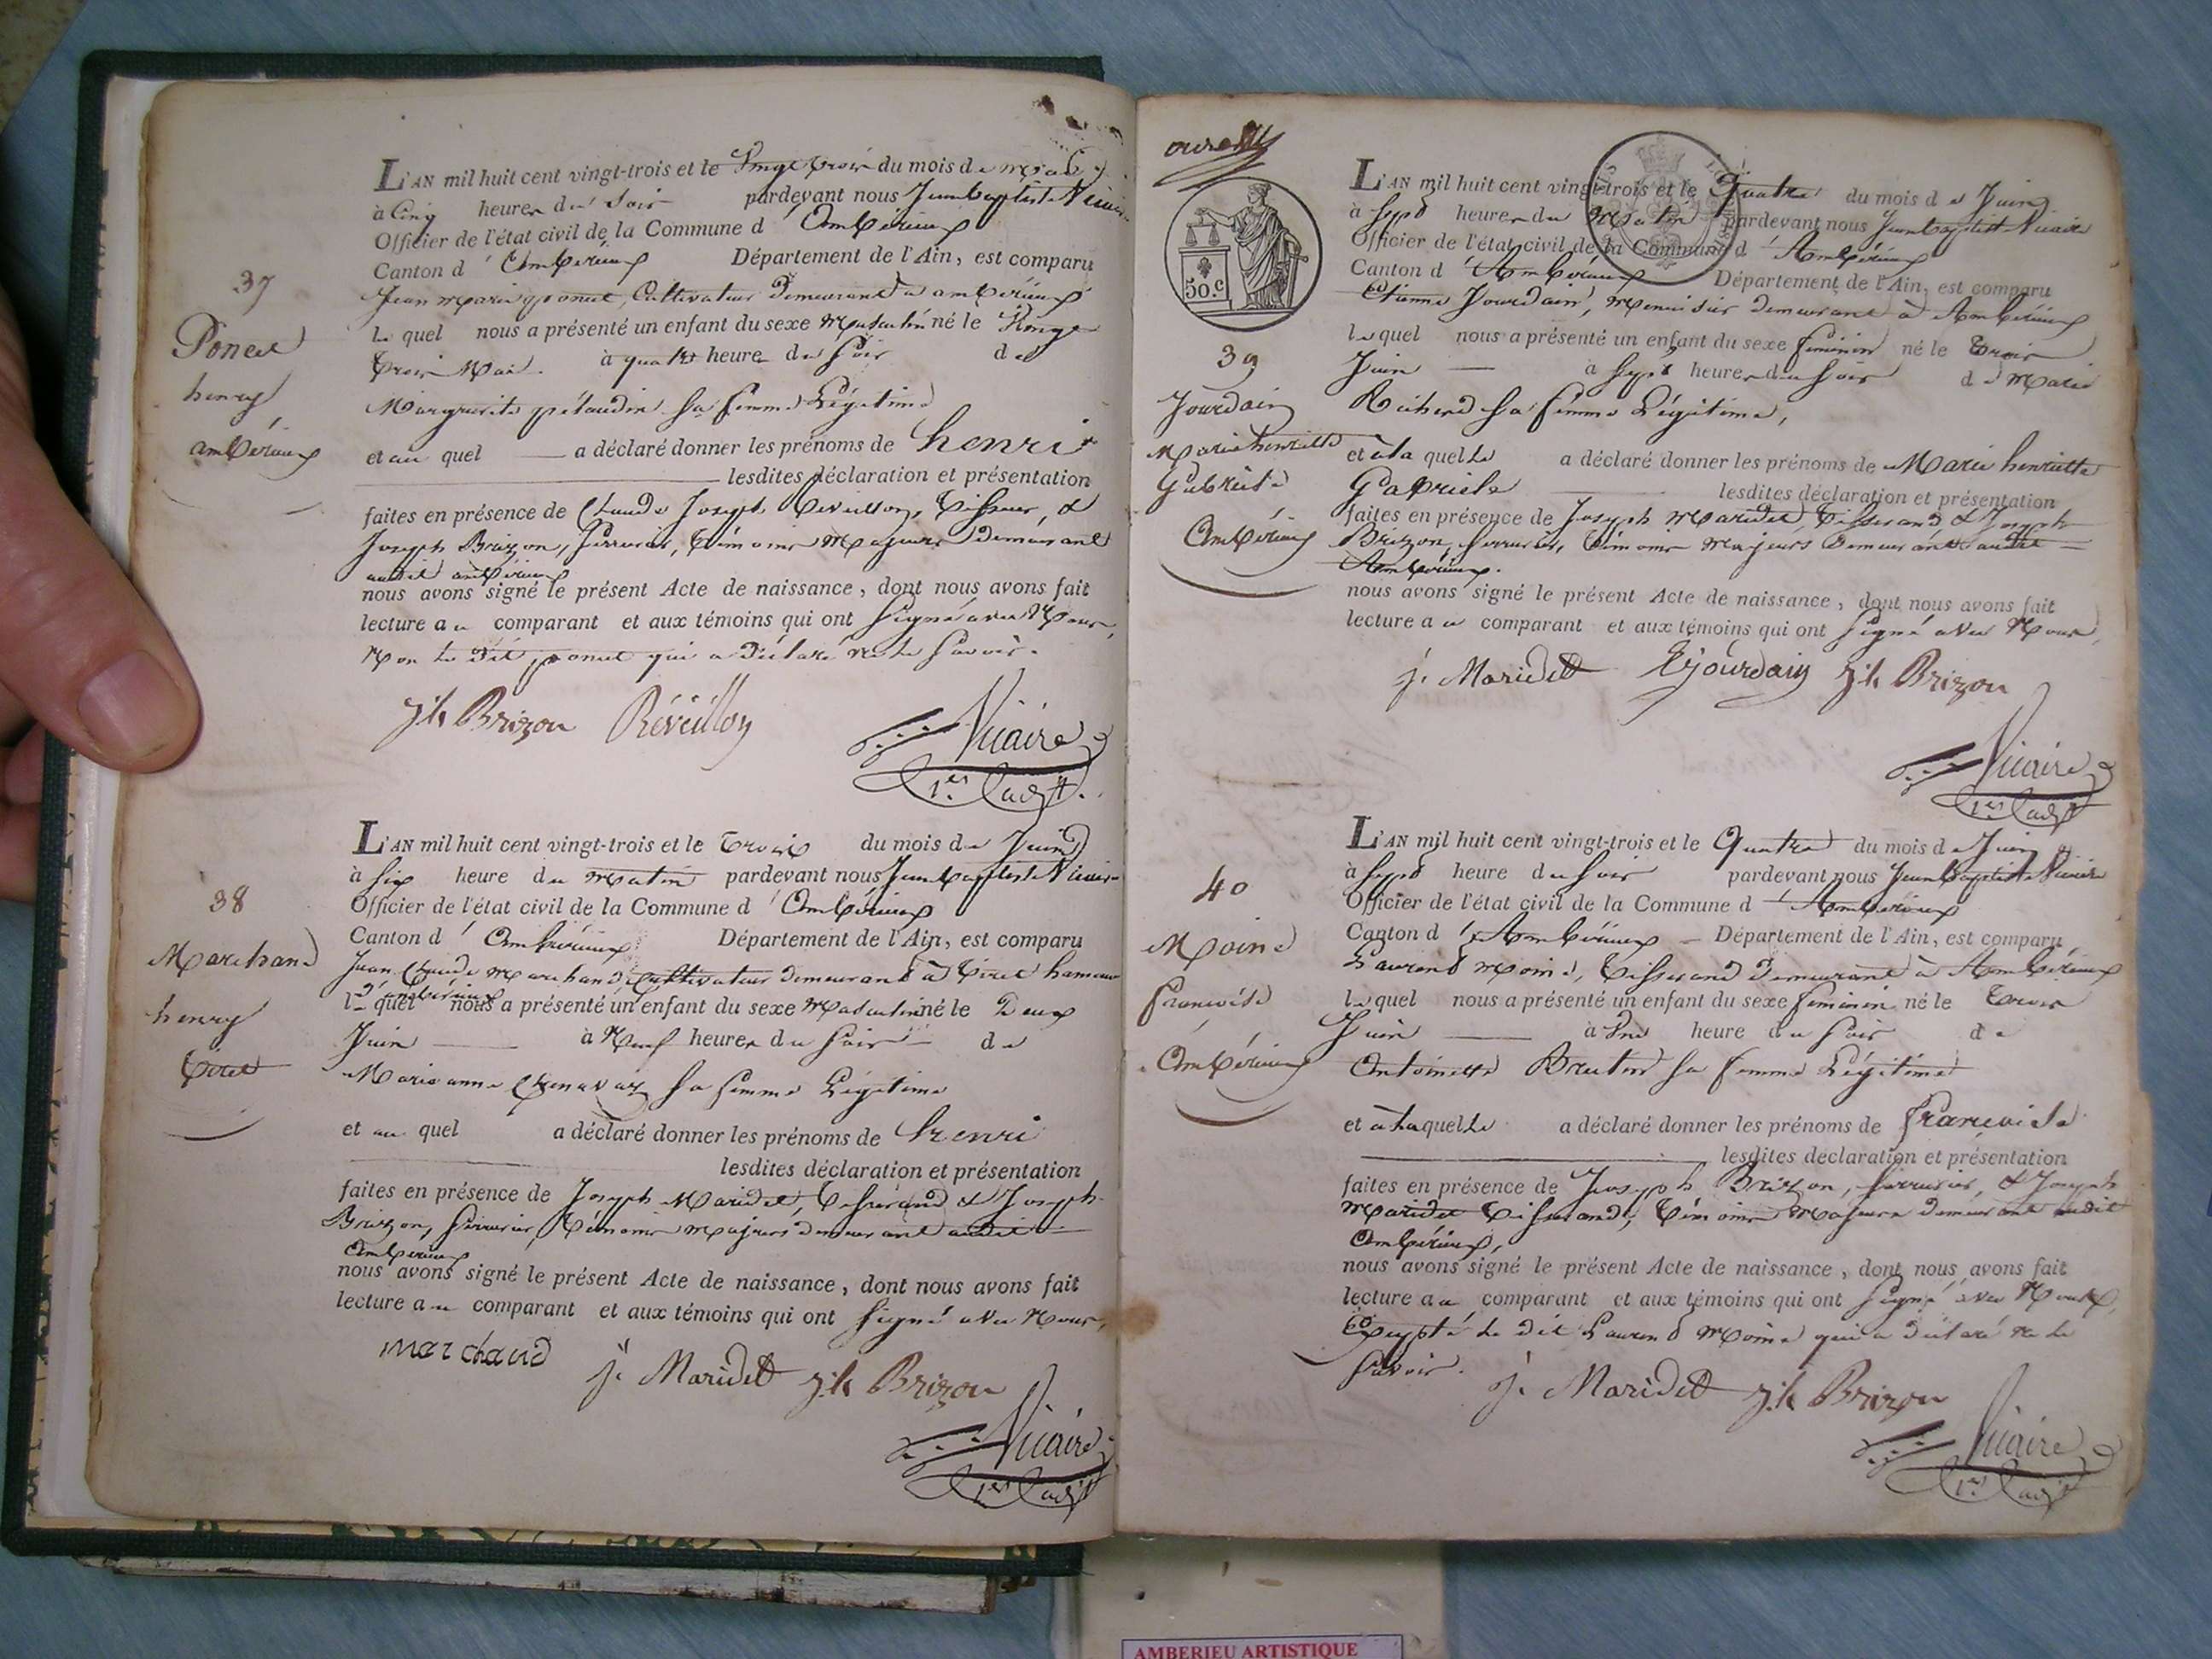 37
Poncet
henry
ambérieux
L'AN mil huit cent vingt-trois et le Vingt trois du mois de Mai
à Cinq heures du Soir pardevant nous Jean Baptiste Vicaire
Officier de l'état civil de la Commune d'Ambérieux
Canton d'Ambérieux Département de l'Ain, est comparu
Jean Marie poncet, Cultivateur demeurant a ambérieux
le quel nous a présenté un enfant du sexe Masculin né le Vingt
trois Mai à quatre heures du Soir de
Marguerite pétaudin sa femme Légitime
et au quel a déclaré donner les prénoms de henri
lesdites déclaration et présentation
faites en présence de Claude Joseph Reveillon, tisseur, et
Joseph Brizon, Serrurier, témoins Majeurs demeurant
audit ambérieux
nous avons signé le présent Acte de naissance, dont nous avons fait
lecture au comparant et aux témoins qui ont Signé avec Nous,
Non le dit poncet qui a déclaré ne le Savoir.
Jh Brizon Réveillon
Vicaire
1er adjt.
38
Marchand
henry
tiret
L'AN mil huit cent vingt-trois et le trois du mois de Juin
à six heure du matin pardevant nous Jean Baptiste Vicaire
Officier de l'état civil de la Commune d'Ambérieux
Canton d'Ambérieux Département de l'Ain, est comparu
Jean Claude Marchand, Cultivateur demeurant à tiret hameau
d'ambérieux
le quel nous a présenté un enfant du sexe Masculin né le Deux
Juin à Neuf heures du Soir de
Marie anne Chenavaz sa femme Légitime
et au quel a déclaré donner les prénoms de henri
lesdites déclaration et présentation
faites en présence de Joseph Maridet, tisserand et Joseph
Brizon, Serrurier, témoins majeurs demeurant audit
Ambérieux
nous avons signé le présent Acte de naissance, dont nous avons fait
lecture au comparant et aux témoins qui ont Signé avec Nous,
marchand j. Maridet Jh Brizon
Vicaire
1er adjt
50.c
39
Jourdain
Marie henriette
Gabriele
Ambérieux
L'AN mil huit cent vingt-trois et le Quatre du mois de Juin
à Sept heures du Matin pardevant nous Jean Baptiste Vicaire
Officier de l'état civil de la Commune d'Ambérieux
Canton d'Ambérieux Département de l'Ain, est comparu
Etienne Jourdain, Menuisier demeurant à Ambérieux
le quel nous a présenté un enfant du sexe feminin né le trois
Juin à Sept heures du Soir de Marie
Richerd sa femme Légitime,
et à la quelle a déclaré donner les prénoms de Marie henriette
Gabriele lesdites déclaration et présentation
faites en présence de Joseph Maridet, tisserand et Joseph
Brizon, Serrurier, témoins Majeurs demeurant audit
Ambérieux.
nous avons signé le présent Acte de naissance, dont nous avons fait
lecture au comparant et aux témoins qui ont Signé avec Nous,
j. Maridet Ejourdain Jh Brizon
Vicaire
1er adjt
40
Moine
francoise
Ambérieux
L'AN mil huit cent vingt-trois et le Quatre du mois de Juin
à Sept heure du Soir pardevant nous Jean Baptiste Vicaire
Officier de l'état civil de la Commune d'Ambérieux
Canton d'Ambérieux Département de l'Ain, est comparu
Laurent Moine, tisserand demeurant à Ambérieux
le quel nous a présenté un enfant du sexe feminin né le trois
Juin à Une heure du Soir de
Antoinette Brutin sa femme Légitime
et à laquelle a déclaré donner les prénoms de francoise
lesdites declaration et présentation
faites en présence de Joseph Brizon, Serrurier, et Joseph
Maridet tisserand, témoins Majeurs demeurant audit
Ambérieux,
nous avons signé le présent Acte de naissance, dont nous avons fait
lecture au comparant et aux témoins qui ont Signé avec Nous,
Excepté le dit Laurent Moine qui a déclaré ne le
Savoir.
j. Maridet Jh Brizon
Vicaire
1er adjt
AMBERIEU ARTISTIQUE